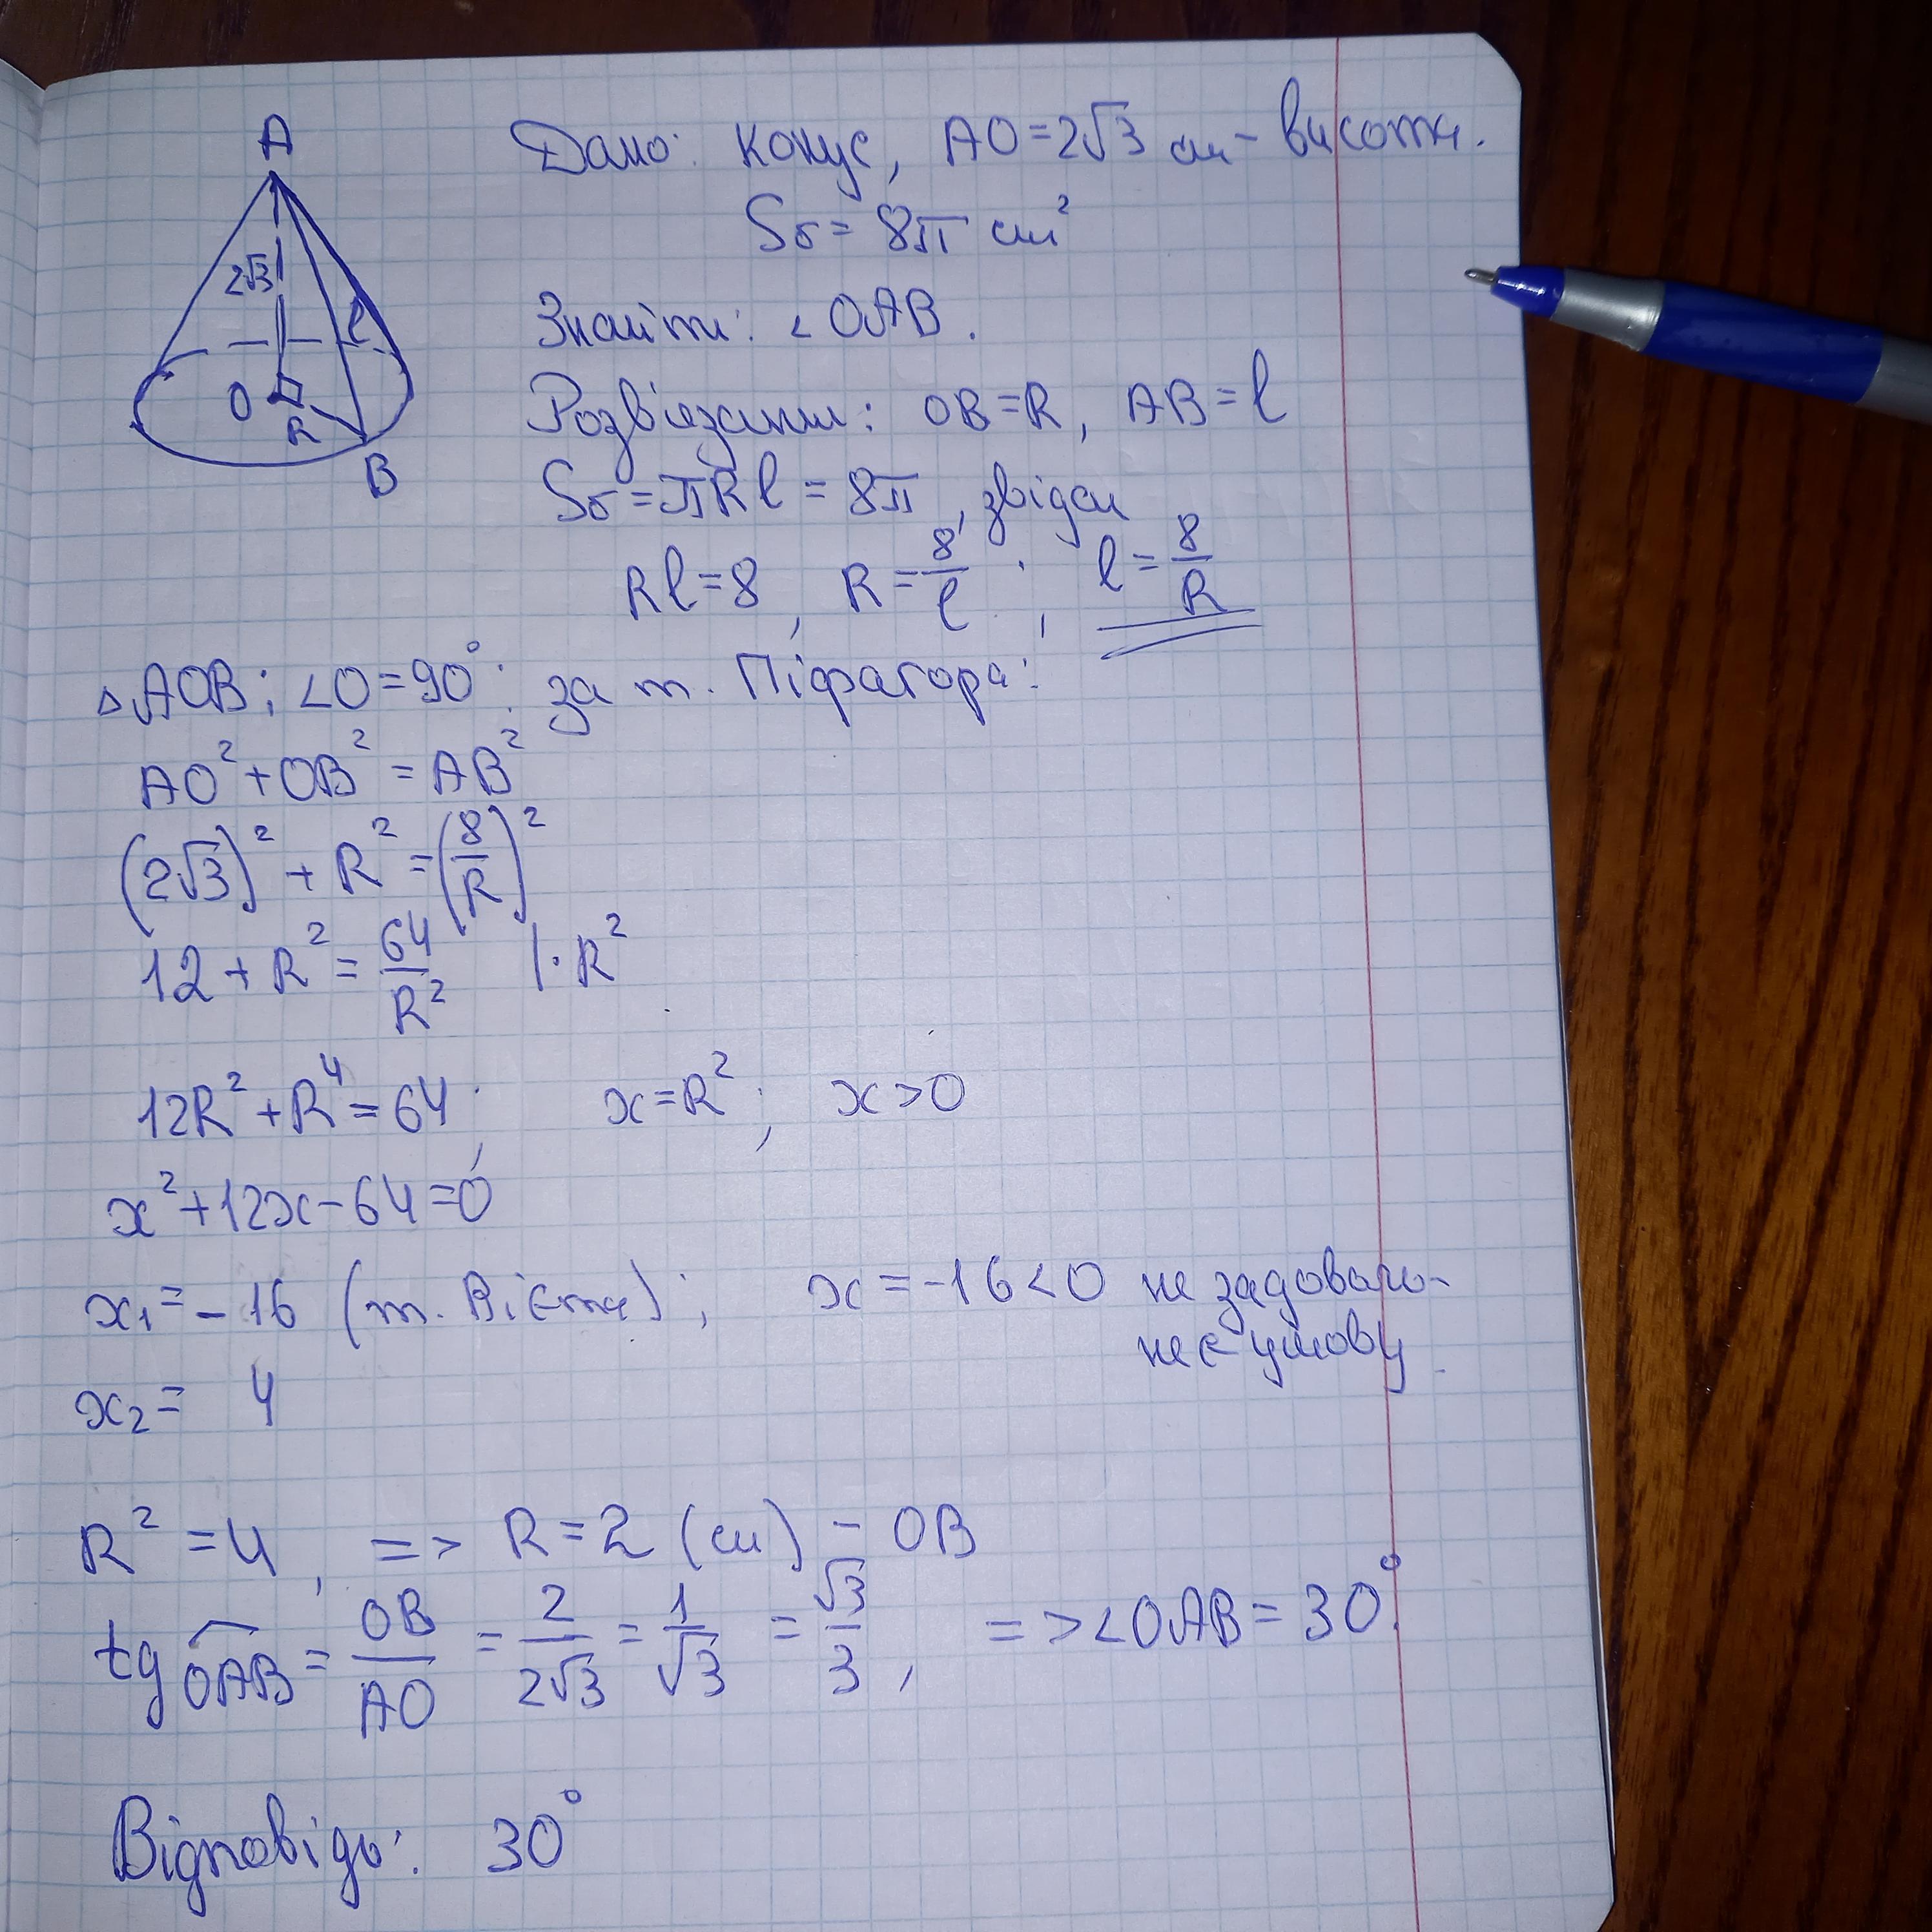 A
2√3
l
O
R
B
Дано: конус, AO = 2√3 см - висота.
Sб = 8π см²
Знайти: ∠OAB.
Розв'язання: OB = R, AB = l
Sб = πRl = 8π, звідси
Rl = 8, R = 8/l; l = 8/R
△AOB; ∠O = 90°; за т. Піфагора:
AO² + OB² = AB²
(2√3)² + R² = (8/R)²
12 + R² = 64/R² | · R²
12R² + R⁴ = 64; x = R²; x > 0
x² + 12x - 64 = 0
x₁ = -16 (т. Вієта); x = -16 < 0 не задоволь-
няє умову.
x₂ = 4
R² = 4, => R = 2 (см) - OB
tg OAB = OB/AO = 2/2√3 = 1/√3 = √3/3, => ∠OAB = 30°.
Відповідь: 30°